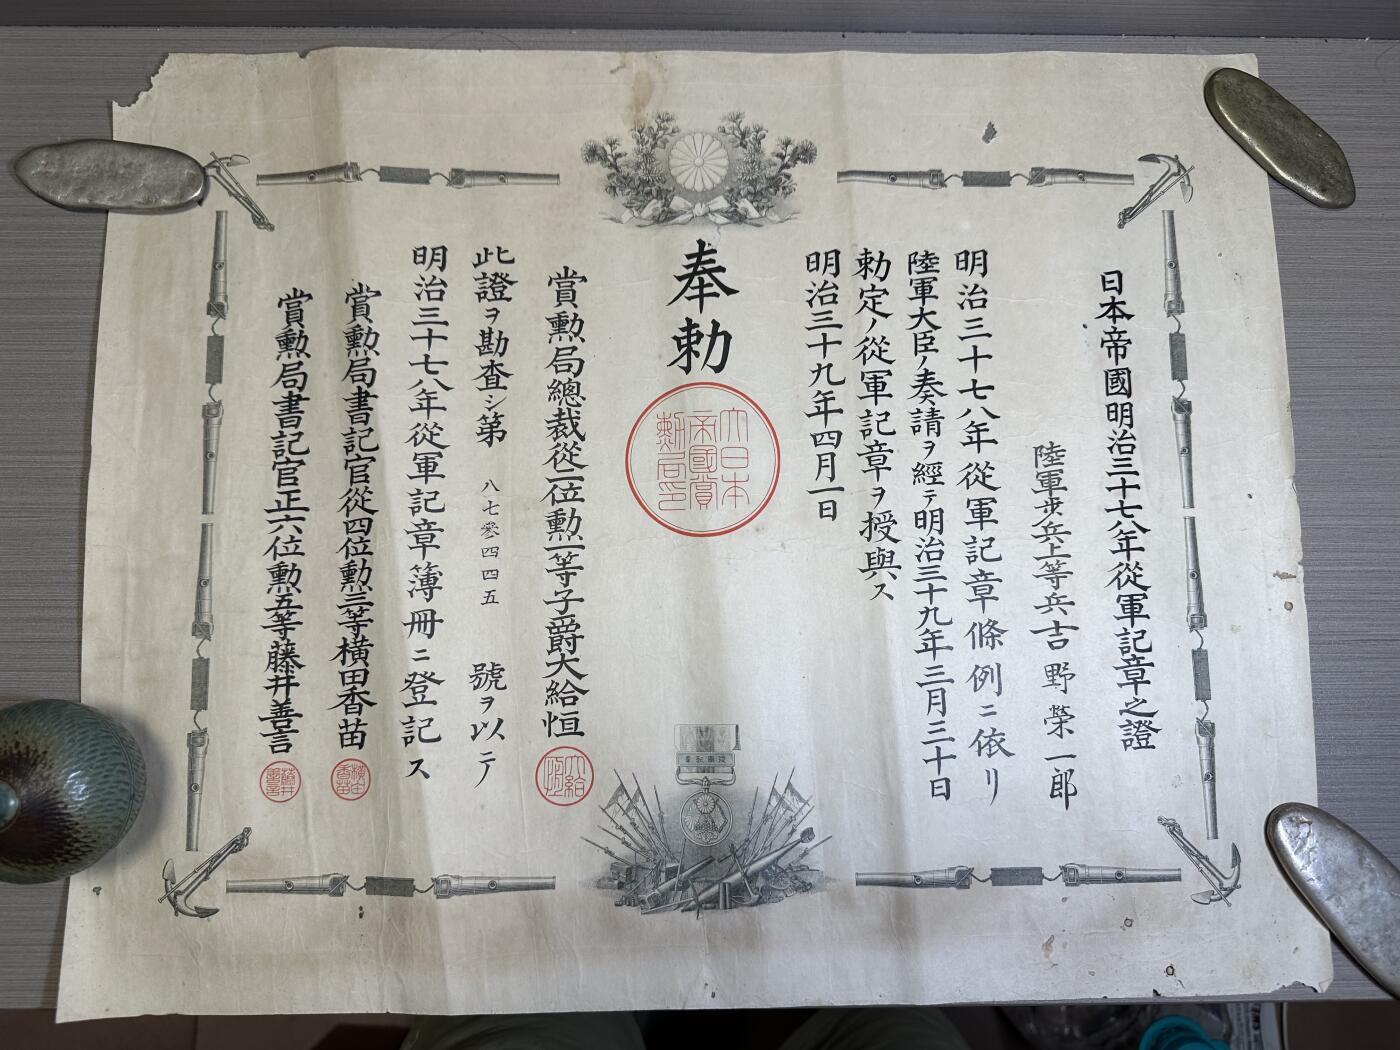 日本帝國明治三十七八年從軍記章之證
陸軍歩兵上等兵吉野榮一郎
明治三十七八年從軍記章條例ニ依リ
陸軍大臣ノ奏請ヲ經テ明治三十九年三月三十日
勅定ノ從軍記章ヲ授與ス
明治三十九年四月一日
奉勅
大日本
帝國賞
勳局印
賞勳局總裁從二位勳一等子爵大給恒
大給
恒
此證ヲ勘査シ第八七參四四五號ヲ以テ
明治三十七八年從軍記章簿冊ニ登記ス
賞勳局書記官從四位勳三等横田香苗
横田
香苗
賞勳局書記官正六位勳五等藤井善言
藤井
善言
章記軍從